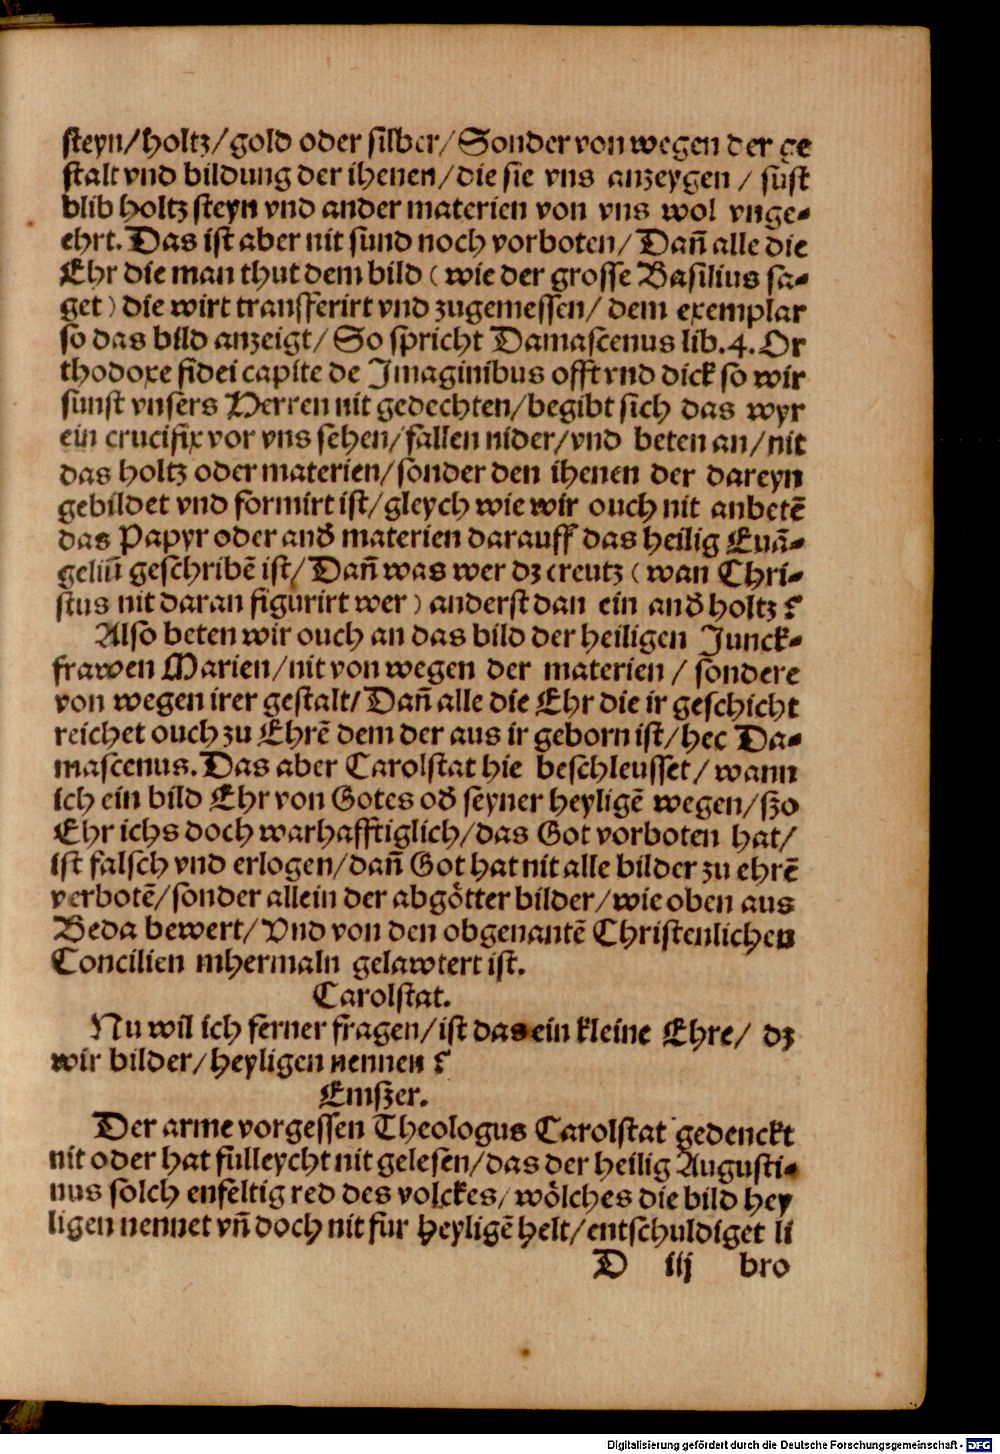 steyn/holtz/gold oder silber/Sonder von wegen der ge
stalt vnd bildung der ihenen/die sie vns anzeygen / sůst
blib holtz steyn vnd ander materien von vns wol vnge-
ehrt. Das ist aber nit sund noch vorboten/Dañ alle die
Ehr die man thut dem bild (wie der grosse Basilius sa-
get) die wirt transferirt vnd zugemessen/ dem exemplar
so das bild anzeigt/ So spricht Damascenus lib.4. Or
thodoxe fidei capite de Imaginibus offt vnd dick so wir
sunst vnsers Herren nit gedechten/begibt sich das wyr
ein crucifix vor vns sehen/fallen nider/vnd beten an/nit
das holtz oder materien/sonder den ihenen der dareyn
gebildet vnd formirt ist/gleych wie wir ouch nit anbetē
das Papyr oder and̕ materien darauff das heilig Euā-
geliū geschribē ist/Dañ was wer dz creutz (wan Chri-
stus nit daran figurirt wer) anderst dan ein and̕ holtz?
Also beten wir ouch an das bild der heiligen Junck-
frawen Marien/nit von wegen der materien / sondere
von wegen irer gestalt/Dañ alle die Ehr die ir geschicht
reichet ouch zu Ehrē dem der aus ir geborn ist/hec Da-
mascenus. Das aber Carolstat hie beschleusset/wann
ich ein bild Ehr von Gotes od̕ seyner heyligē wegen/szo
Ehr ichs doch warhafftiglich/das Got vorboten hat/
ist falsch vnd erlogen/dañ Got hat nit alle bilder zu ehrē
verbotē/sonder allein der abgötter bilder/wie oben aus
Beda bewert/Vnd von den obgenantē Christenlichen
Concilien mhermaln gelawtert ist.
Carolstat.
Nu wil ich ferner fragen/ist das ein kleine Ehre/ dz
wir bilder/heyligen nennen?
Emszer.
Der arme vorgessen Theologus Carolstat gedenckt
nit oder hat fulleycht nit gelesen/das der heilig Augusti-
nus solch enfeltig red des volckes/wölches die bild hey
ligen nennet vñ doch nit fur heyligē helt/entschuldiget li
D iij bro
Digitalisierung gefördert durch die Deutsche Forschungsgemeinschaft - DFG